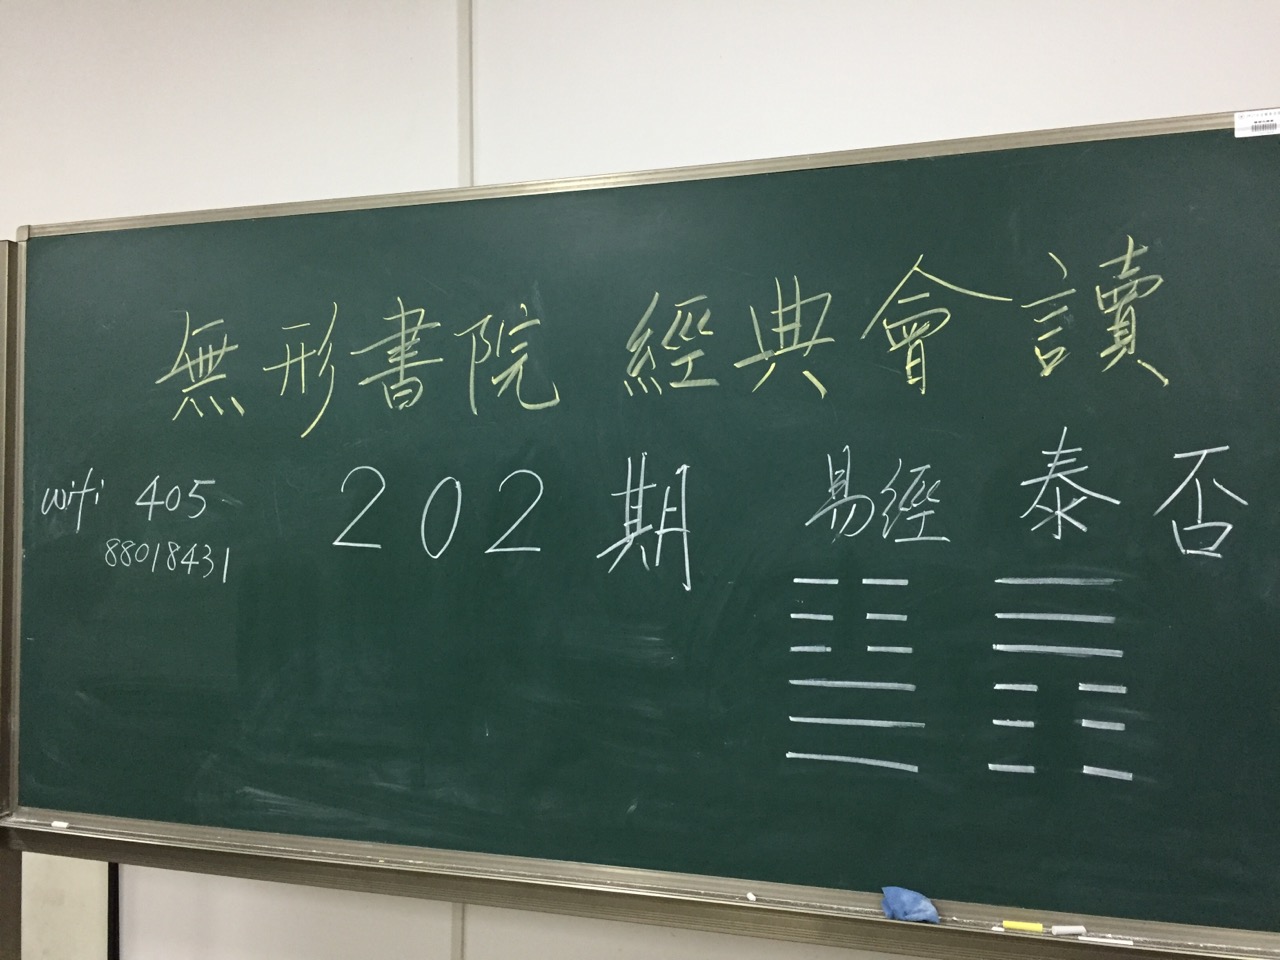 無形書院 經典會讀
wifi 405
88018431
202期
易經 泰 否